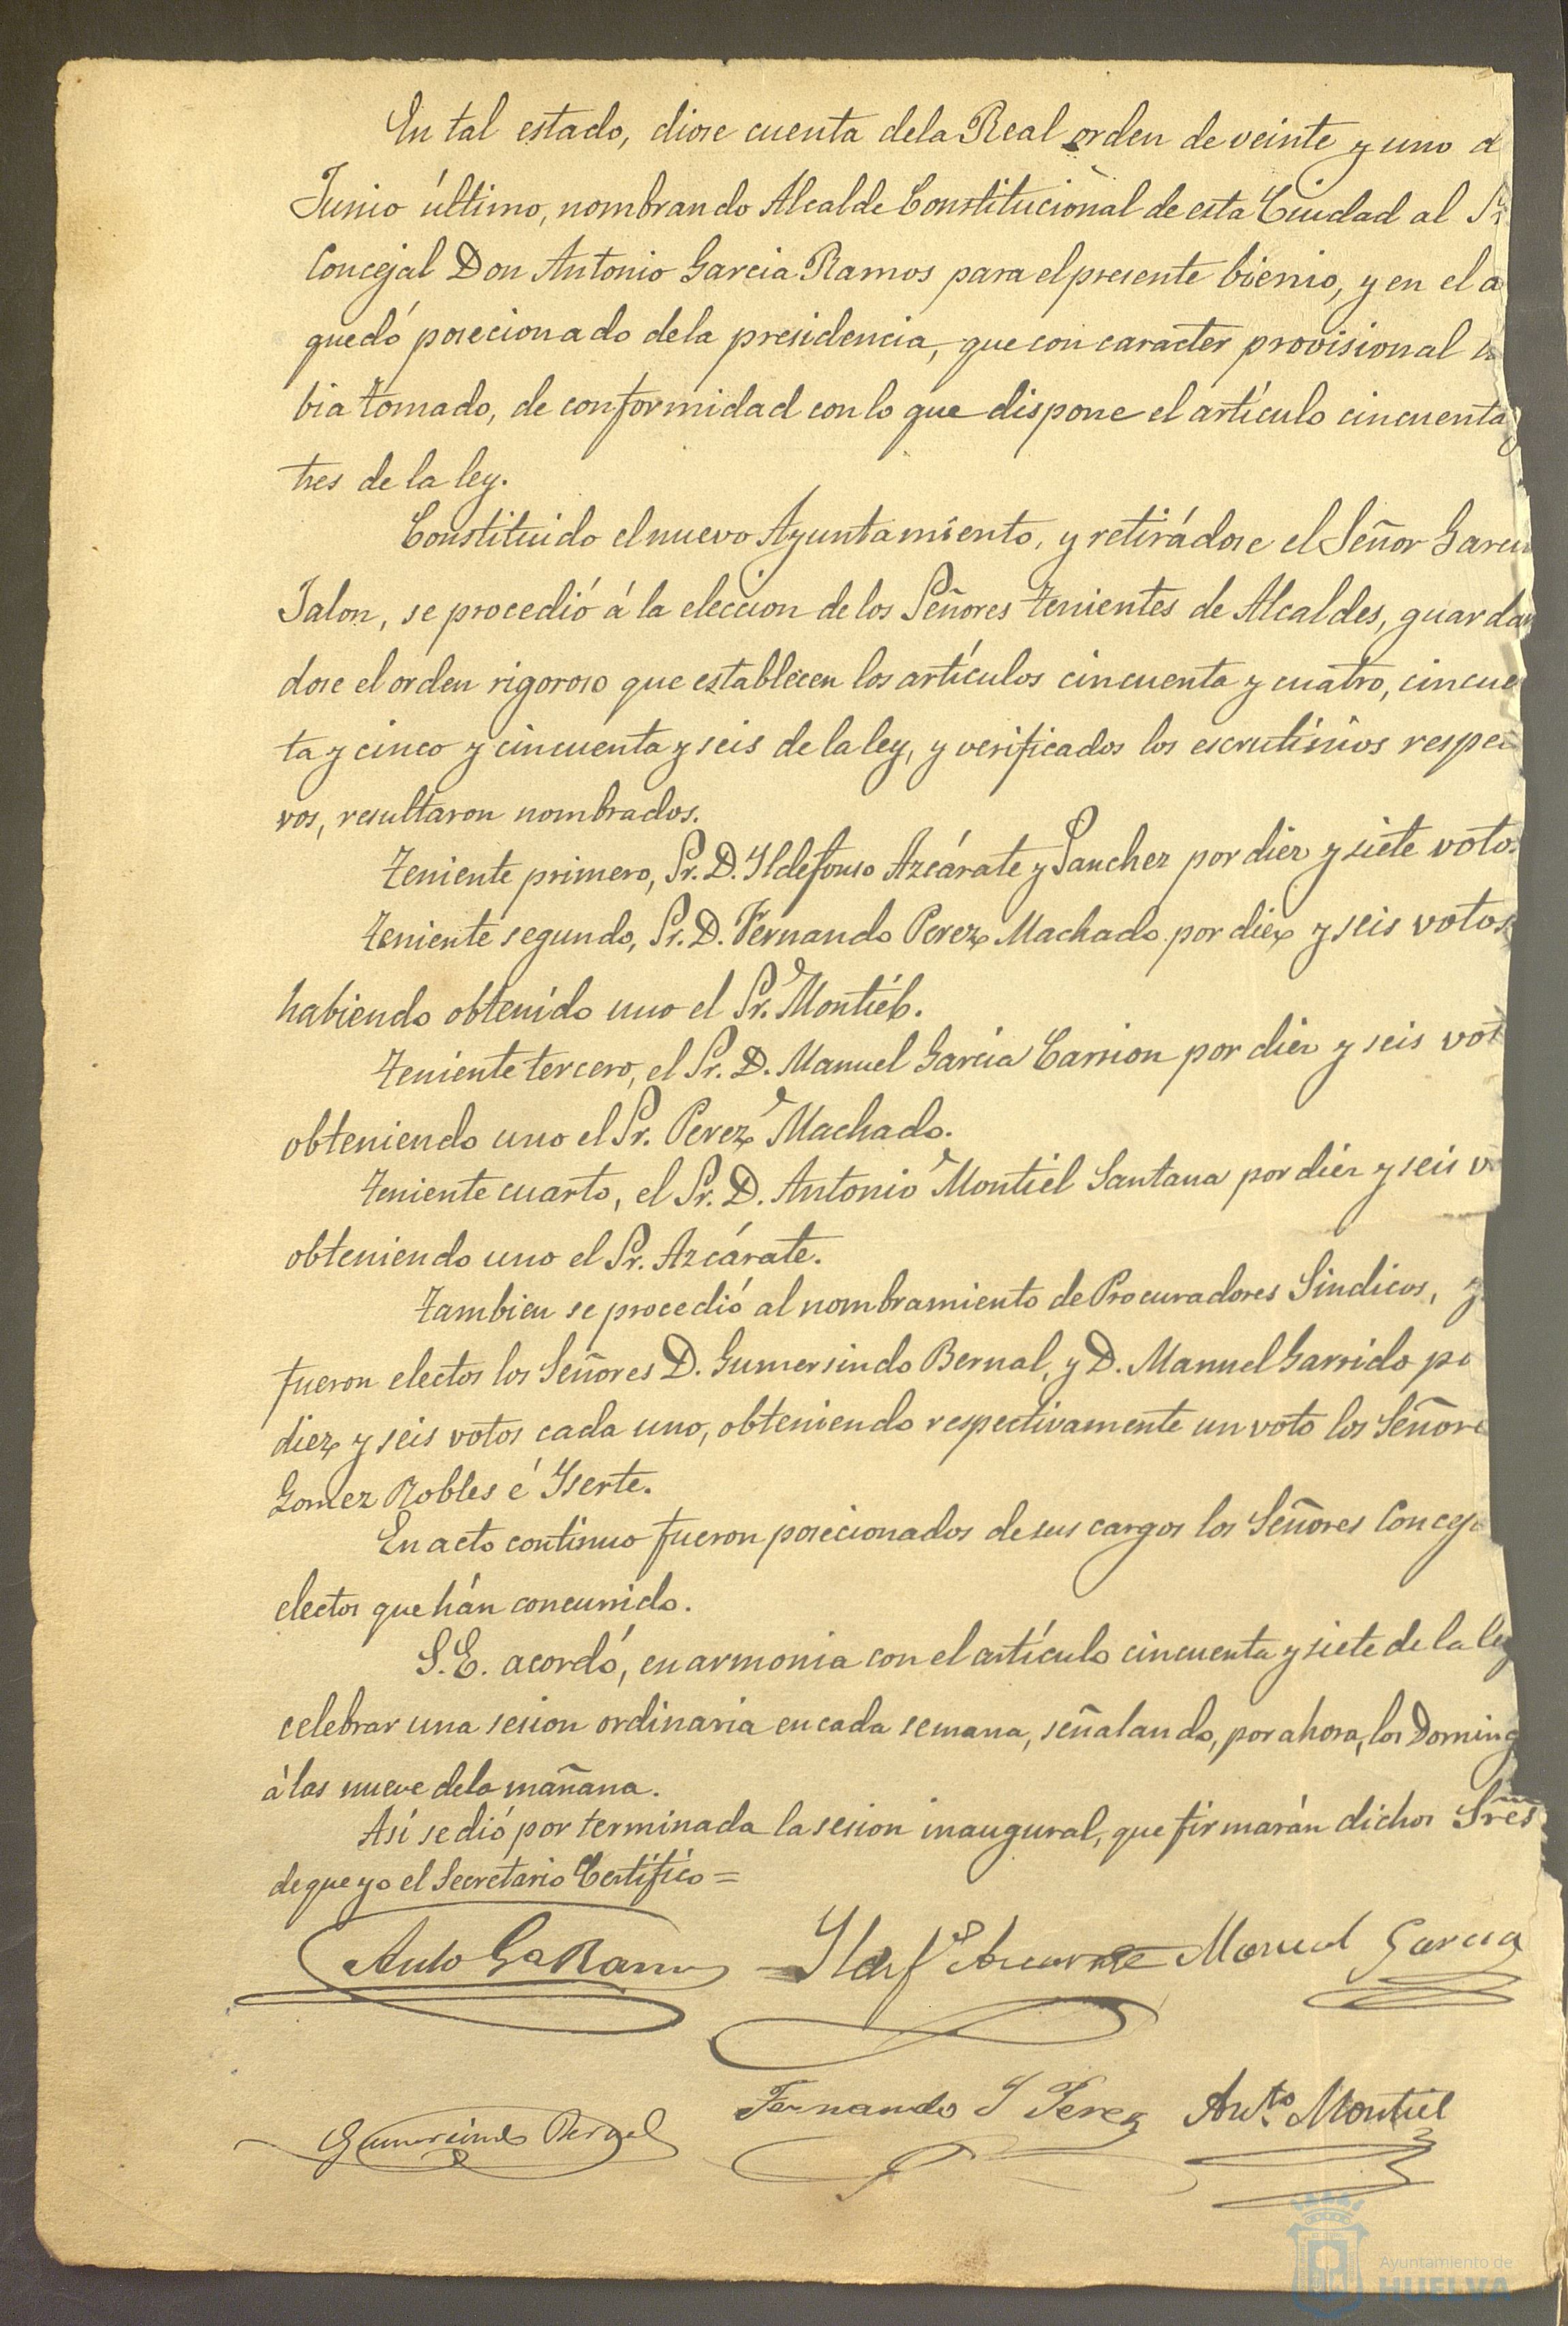 En tal estado, diose cuenta dela Real orden de veinte y uno d
Junio último, nombrando Alcalde Constitucional de esta Ciudad al Sr
Concejal Don Antonio Garcia Ramos para el presente bienio, y en el a
quedó posecionado dela presidencia, que con caracter provisional h
bia tomado, de conformidad con lo que dispone el artículo cincuenta y
tres de la ley.
Constituido el nuevo Ayuntamiento, y retirádose el Señor Garci
Jalon, se procedió á la eleccion de los Señores tenientes de Alcaldes, guardan
dose el orden rigoroso que establecen los artículos cincuenta y cuatro, cincue
ta y cinco y cincuenta y seis de la ley, y verificados los escrutinios respec
vos, resultaron nombrados.
Teniente primero, Sr. D. Yldefonso Azcárate y Sanchez por diez y siete votos
Teniente segundo, Sr. D. Fernando Perez Machado por diez y seis votos
habiendo obtenido uno el Sr. Montiél.
Teniente tercero, el Sr. D. Manuel Garcia Carrion por diez y seis vot
obteniendo uno el Sr. Perez Machado.
Teniente cuarto, el Sr. D. Antonio Montiel Santana por diez y seis v
obteniendo uno el Sr. Azcárate.
Tambien se procedió al nombramiento de Procuradores Sindicos, y
fueron electos los Señores D. Gumersindo Bernal, y D. Manuel Garrido po
diez y seis votos cada uno, obteniendo respectivamente un voto los Señore
Gomez Robles é Yserte.
En acto continuo fueron posecionados de sus cargos los Señores Conceja
electos que hán concurrido.
S. E. acordó, en armonia con el artículo cincuenta y siete de la ley
celebrar una sesion ordinaria en cada semana, señalando, por ahora, los Doming
á las nueve dela mañana.
Así se dió por terminada la sesion inaugural, que firmarán dichos Sres
de que yo el Secretario Certífico =
Anto Ga Ramos Yldefso Azcarate Manuel Garcia
Gumersindo Bernal Fernando J Perez Anto. Montiel
Ayuntamiento de
HUELVA